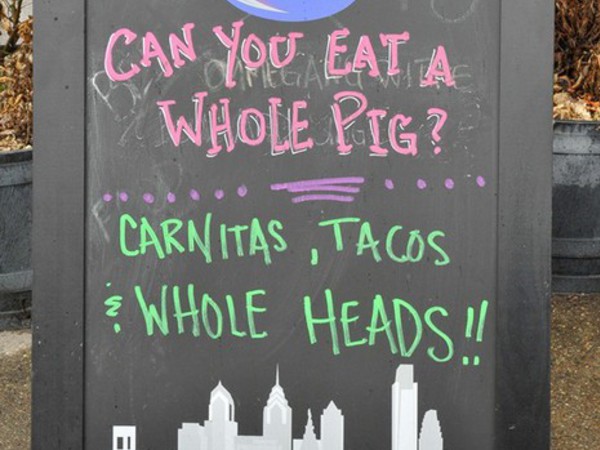 CAN YOU EAT A
WHOLE PIG?
CARNITAS, TACOS
& WHOLE HEADS!!